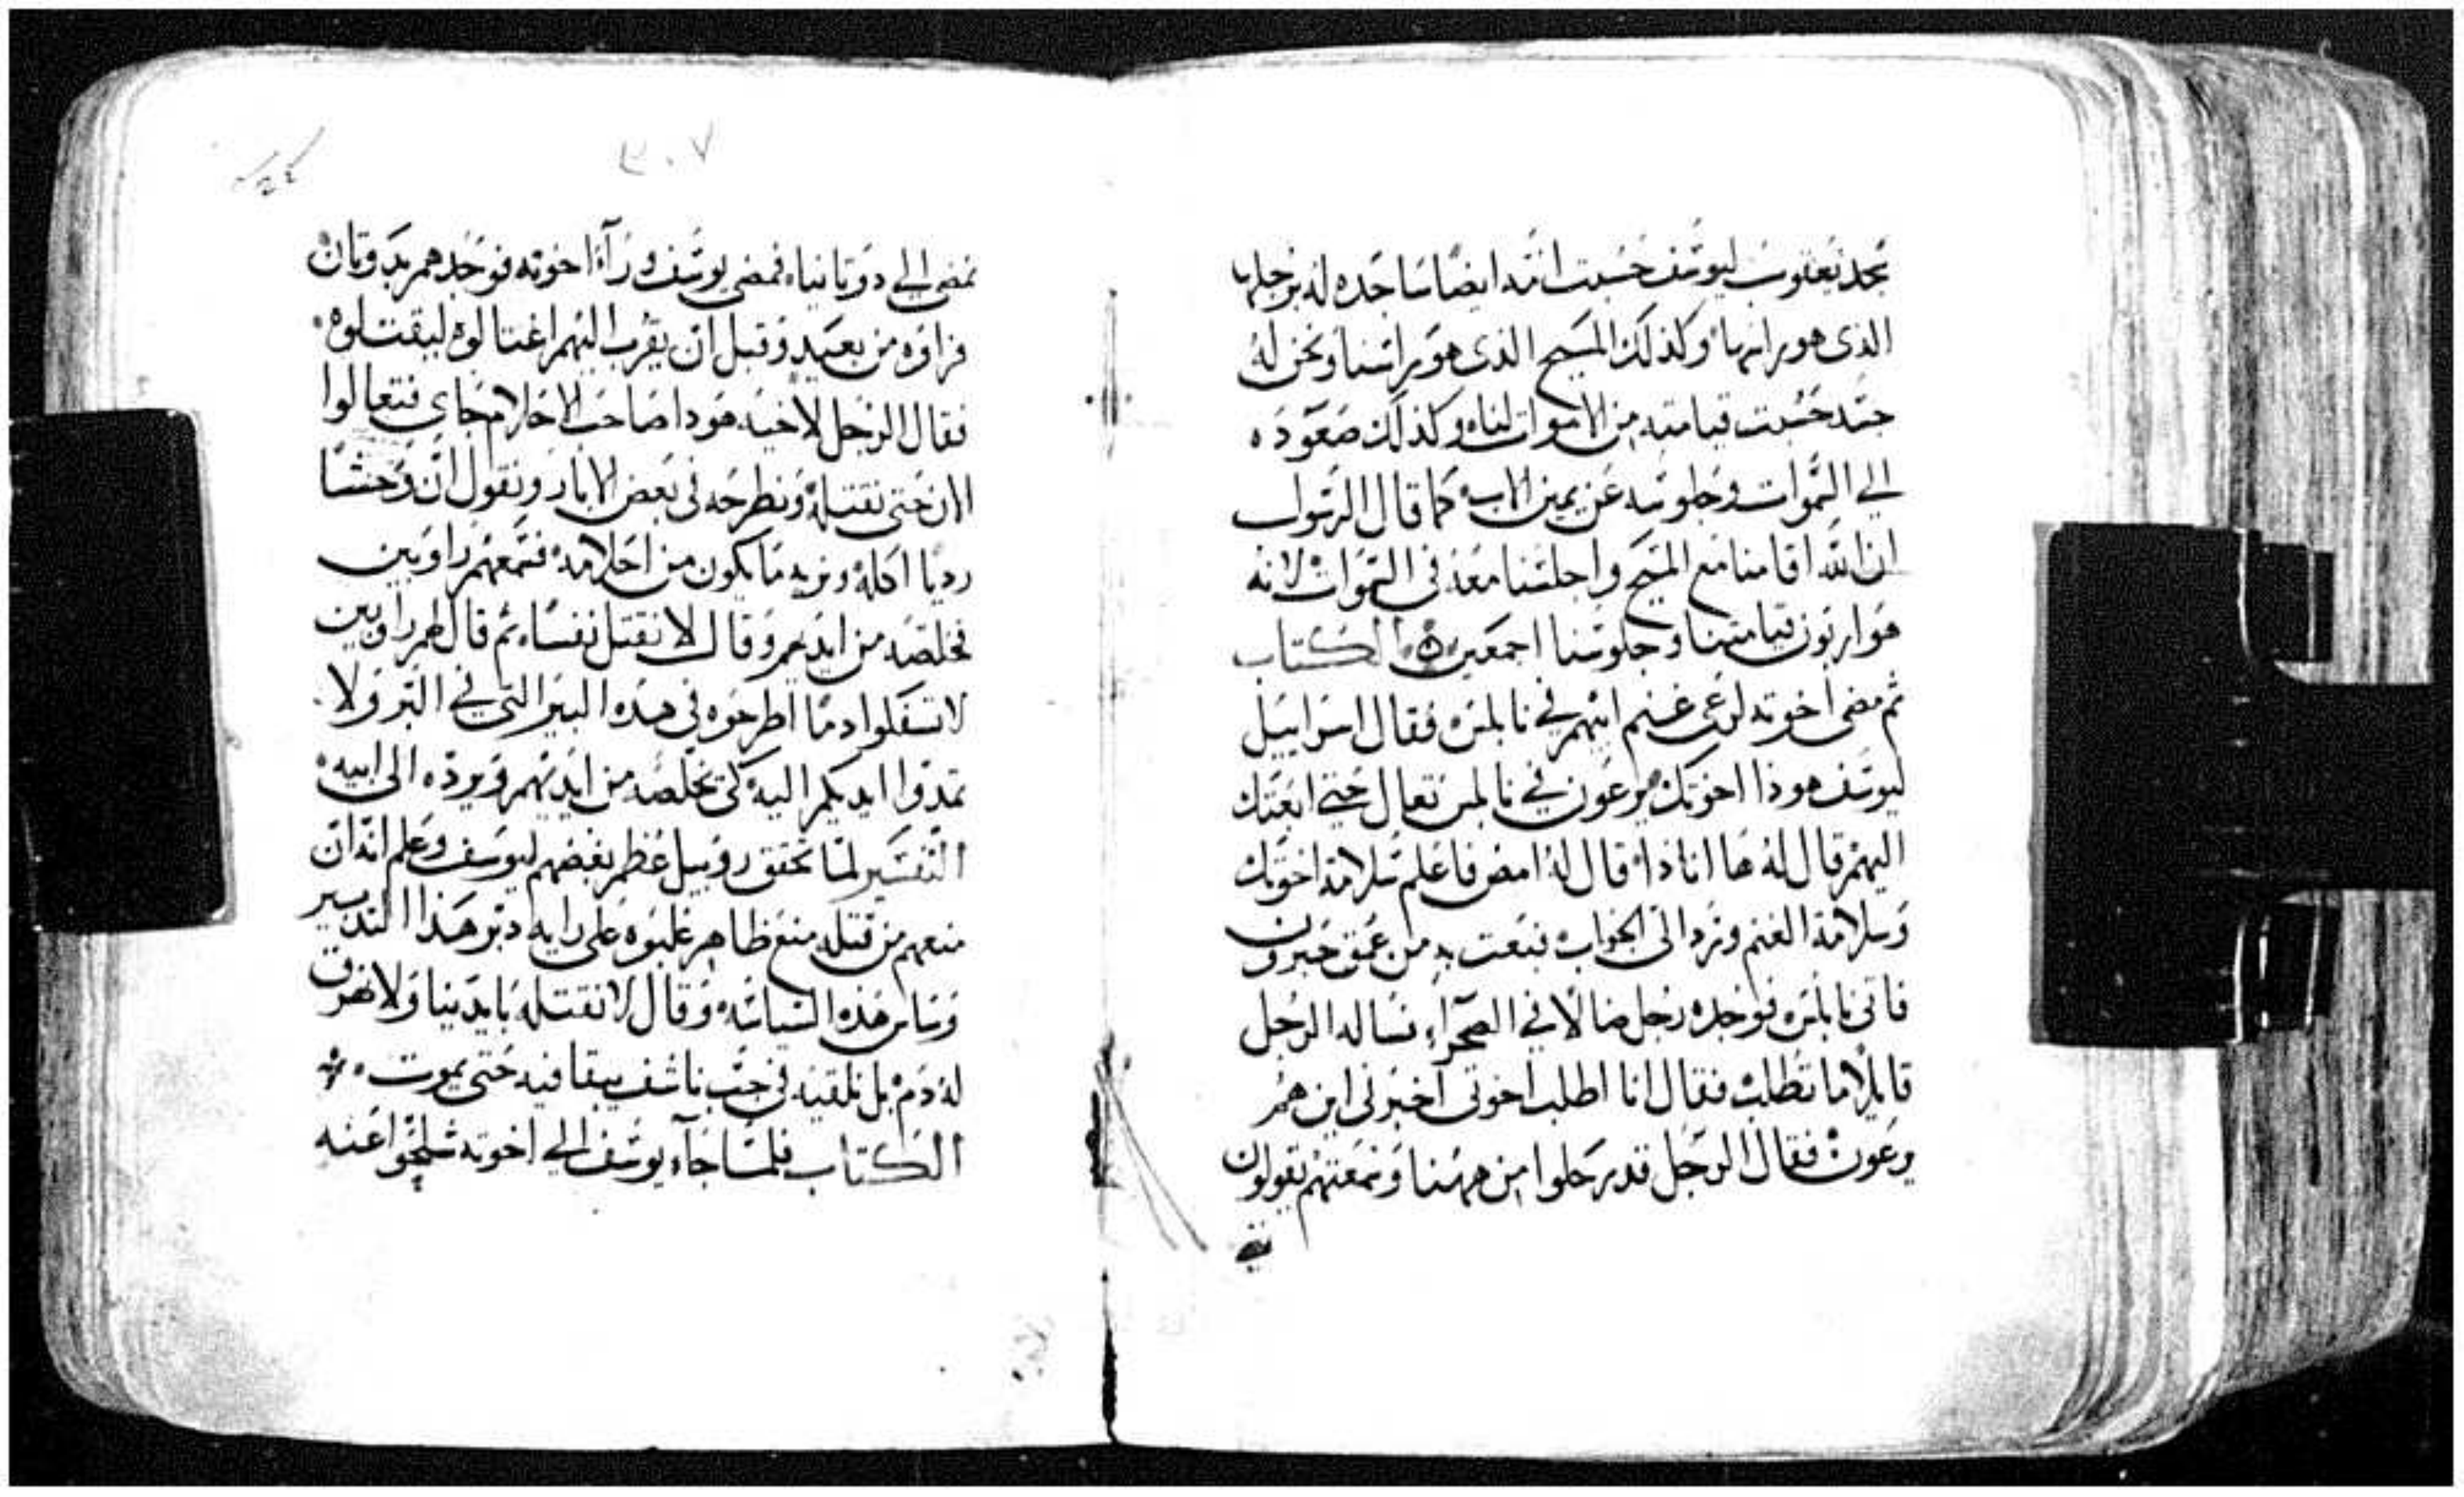 بجد يعقوب ليوسف حسبت امه ايضا ساجده له برجلها
الذى هو براسها وكذلك المسيح الذى هو براسنا ونحن له
جسد حسبت قيامته من الاموات لنا وكذلك صعوده
الي السموات وجلوسه عن يمين الاب كما قال الرسول
ان الله اقامنا مع المسيح واجلسنا معه في السموات لانه
هو اربون قيامتنا وجلوسنا اجمعين الكتاب
ثم مضى اخوته لرعى غنم ابيهم في نابلس فقال اسراييل
ليوسف هوذا اخوتك يرعون في نابلس تعال حتي ابعتك
اليهم قال له ها انا ذا قال له امض فاعلم سلامة اخوتك
وسلامة الغنم وترد الى الجواب فبعت به من عمق حبرون
فاتى نابلس فوجده رجل ضالا في الصحراء فساله الرجل
قايلا ما تطلب فقال انا اطلب اخوتى اخبرنى اين هم
يرعون فقال الرجل قد رحلوا من ههنا وسمعتهم يقولون
٣٠٧
نمضى الي دوتانيا فمضى يوسف وراء اخوته فوجدهم بدوتان
فراوه من بعيد وقبل ان يقرب اليهم اغتالوه ليقتلوه
فقال الرجل لاخيه هودا صاحب الاحلام جاى فتعالوا
الان حتى نقتله ونطرحه في بعض الابار ونقول ان وحشا
رديا اكله ونريه ما يكون من احلامه فسمعهم راوبين
فخلصه من ايديهم وقال لا نقتل نفسا ثم قال لهم راوبين
لا تسفكوا دما اطرحوه في هذه البير التى في البر ولا
تمدوا ايديكم اليه لكى يخلصه من ايديهم ويرده الى ابيه
التفسير لما تحقق روبيل عظم بغضهم ليوسف وعلم انه ان
منعهم من قتله منع ظاهر غلبوه على رايه دبر هذا التدبير
وساس هذه السياسه وقال لا نقتله بايدينا ولا نهرق
له دم بل نلقيه في جب ناشف يبقا فيه حتى يموت
الكتاب فلما جاء يوسف الي اخوته شلحوا عنه